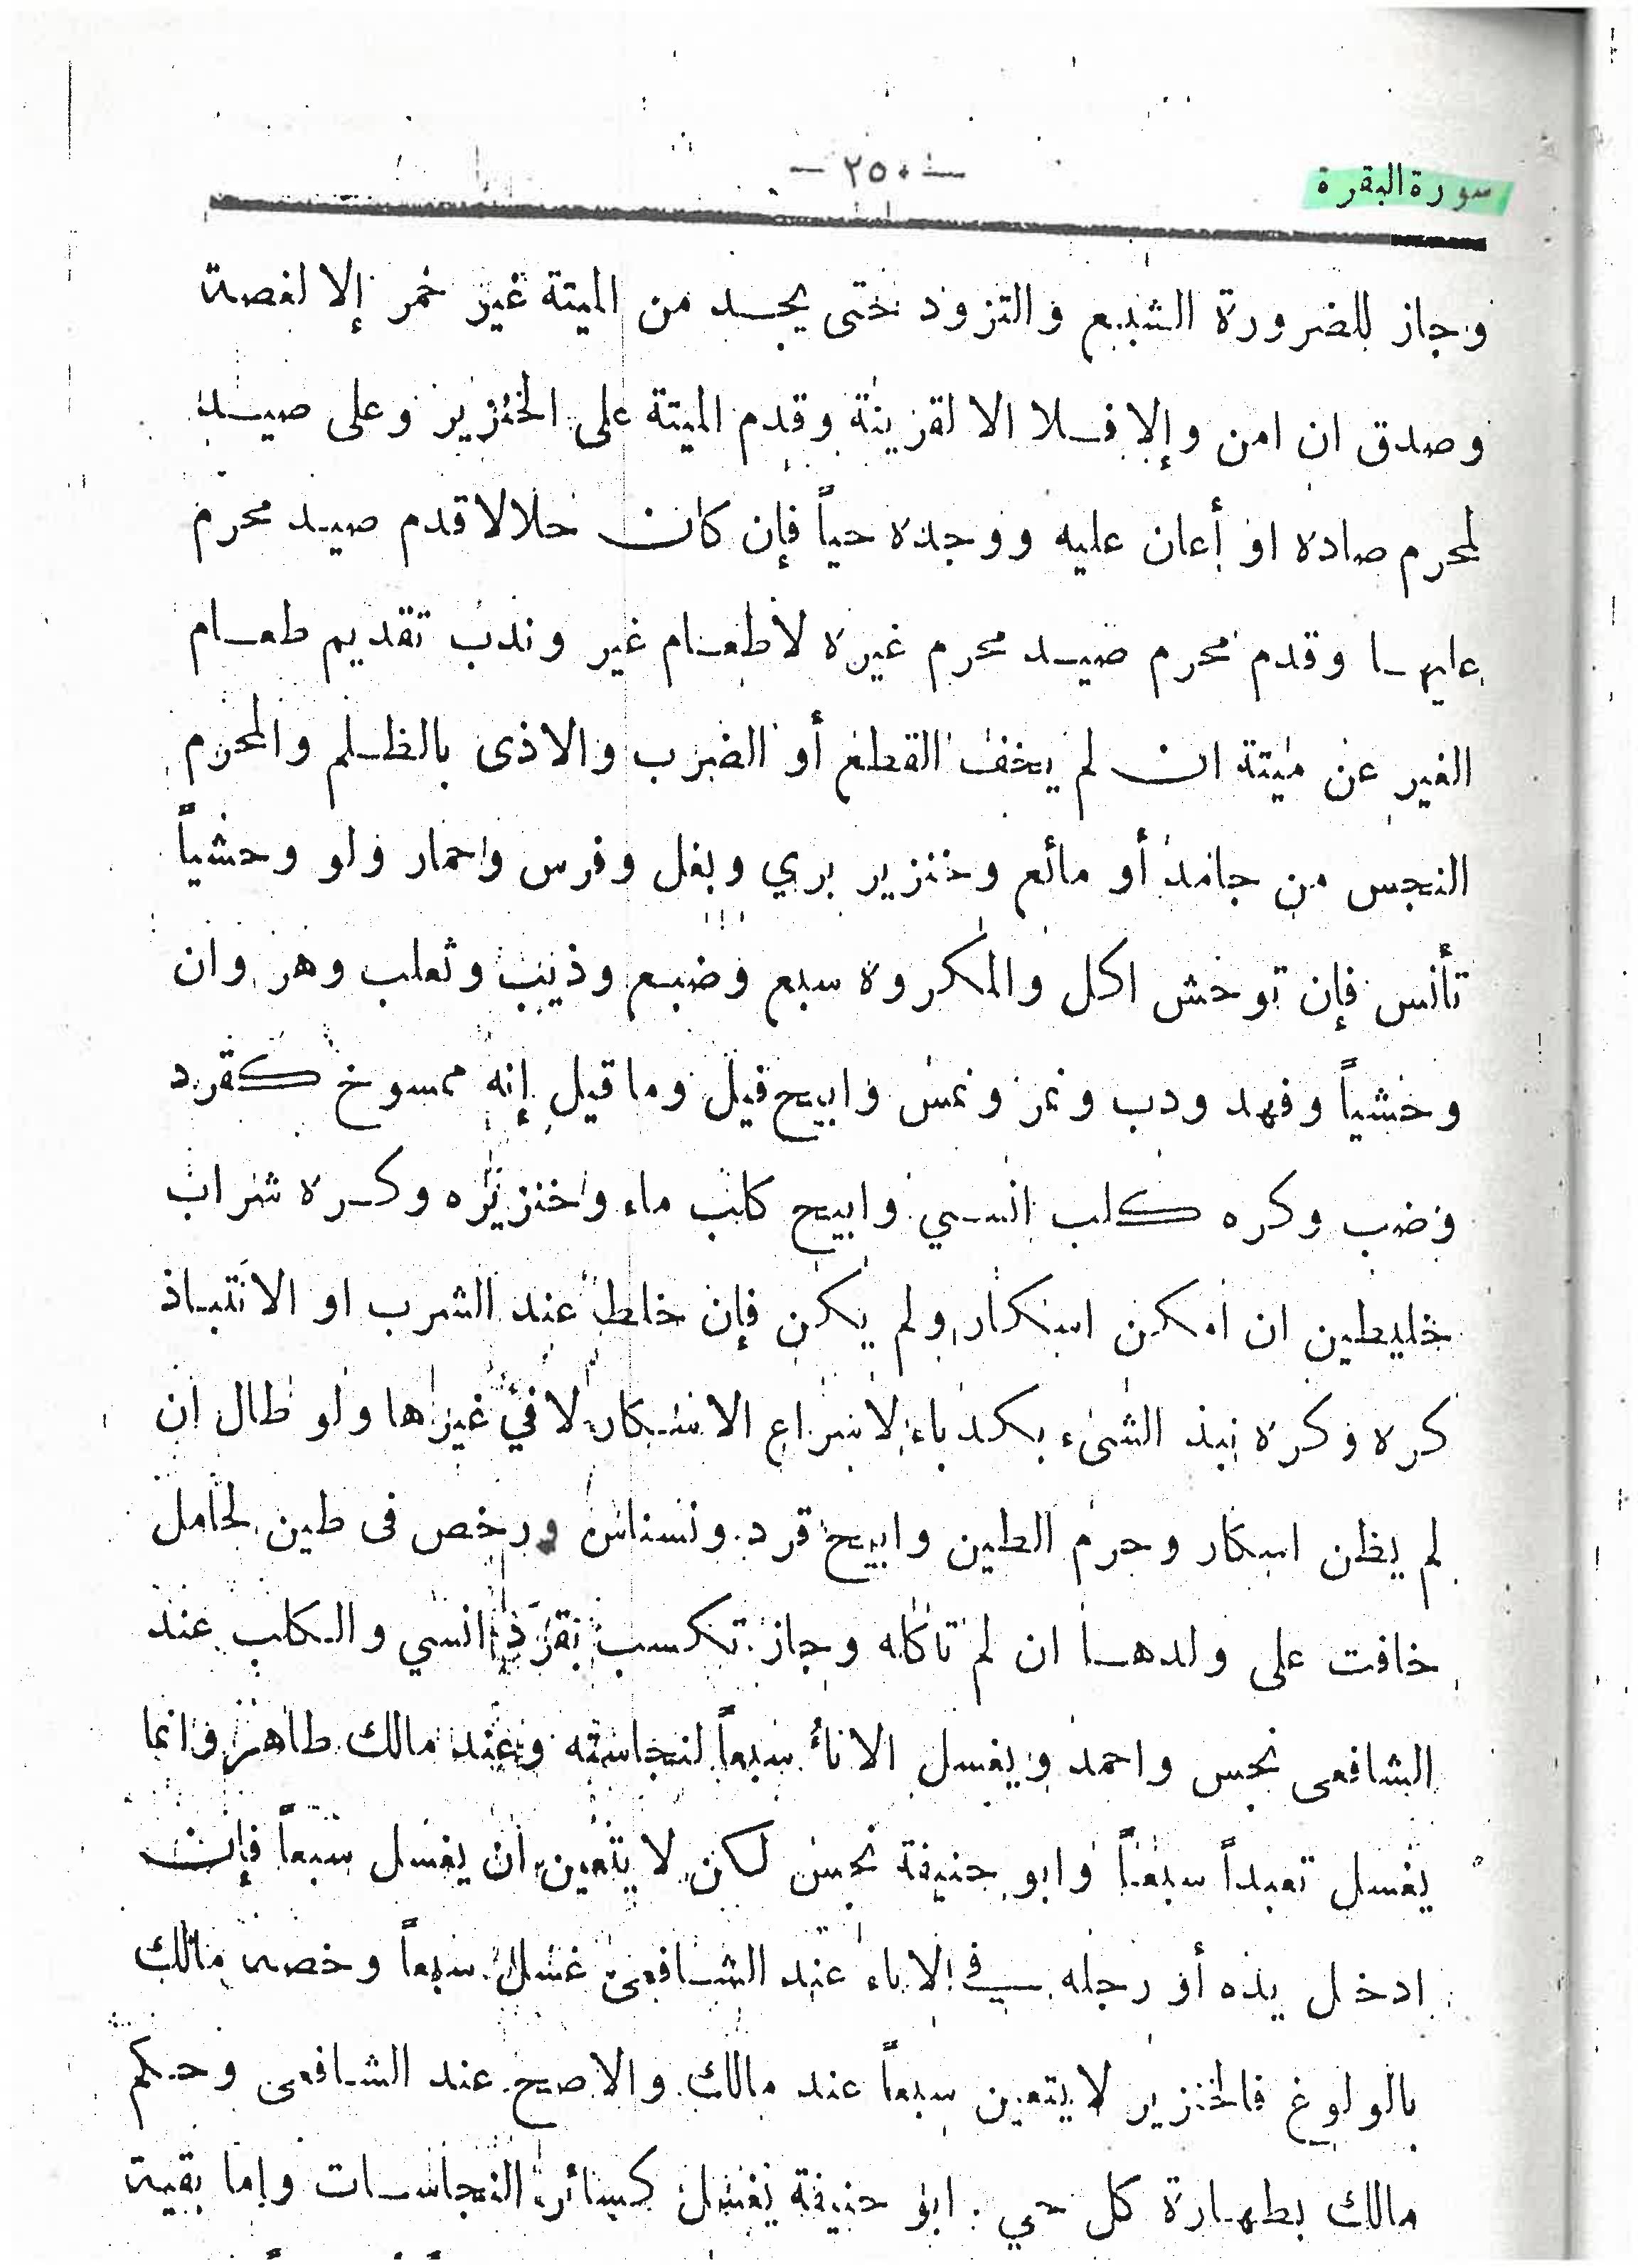 سورة البقرة
— ٢٥٠ —
وجاز للضرورة الشبع والتزود حتى يجد من الميتة غير خمر إلا لغصة
وصدق ان امن وإلا فلا الا لقرينة وقدم الميتة على الخنزير وعلى صيد
لمحرم صاده او أعان عليه ووجده حياً فإن كان حلالا قدم صيد محرم
عليها وقدم محرم صيد محرم غيره لا طعام غير وندب تقديم طعام
الغير عن ميتة ان لم يخف القطع أو الضرب والاذى بالظلم والمحرم
النجس من جامد أو مائع وخنزير بري وبغل وفرس واحمار ولو وحشياً
تأنس فإن توحش اكل والمكروه سبع وضبع وذيب وثعلب وهر وان
وحشياً وفهد ودب ونمر ونمس وابيح فيل وما قيل إنه ممسوخ كقرد
وضب وكره كلب انسي وابيح كلب ماء واخنزيره وكره شراب
خليطين ان امكن اسكار ولم يكن فإن خلط عند الشرب او الانتباذ
كره وكره نبذ الشىء بكدباء لاسراع الاسكار لا في غيرها ولو طال ان
لم يظن اسكار وحرم الطين وابيح قرد ونسناس ورخص فى طين لحامل
خافت على ولدها ان لم تاكله وجاز تكسب بقرد انسي والكلب عند
الشافعى نجس واحمد ويغسل الاناء سبعاً لنجاسته وعند مالك طاهر وانما
يغسل تعبداً سبعاً وابو حنيفة نجس لكن لا يتعين ان يغسل سبعاً فإن
ادخل يده أو رجله في الاناء عند الشافعى غسل سبعاً وخصه مالك
بالولوغ فالخنزير لا يتعين سبعاً عند مالك والاصح عند الشافعى وحكم
مالك بطهارة كل حي . ابو حنيفة يغسل كسائر النجاسات وإما بقية